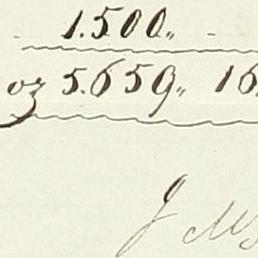 1.500〃
oz 5.659〃 16
J W